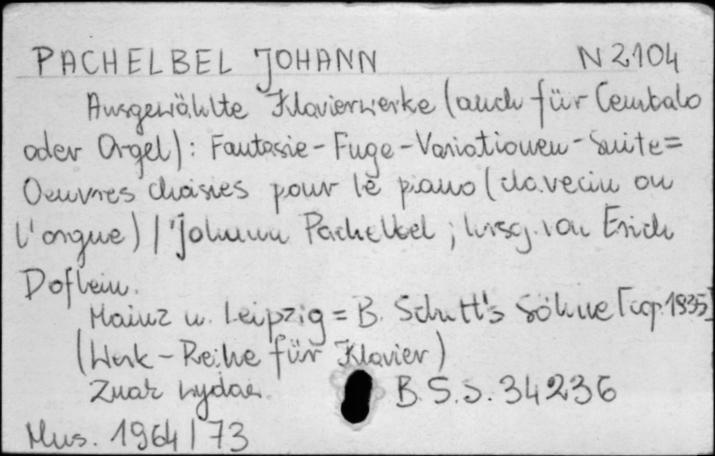 PACHELBEL JOHANN N 2104
Ausgewählte Klavierwerke (auch für Cembalo
oder Orgel): Fantasie - Fuge - Variationen - Suite =
Oeuvres choisies pour le piano (clavecin ou
l'orgue) / Johann Pachelbel ; hrsg. von Erich
Doflein.
Mainz u. Leipzig = B. Schott's Söhne [cop. 1935]
(Werk - Reihe für Klavier)
Znak wydaw. B.S.S. 34236
Mus. 1964 / 73